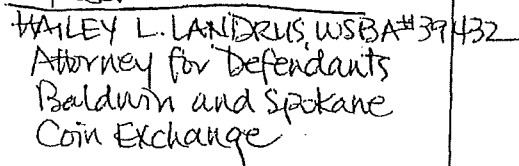 HAILEY L. LANDRUS, WSBA #39432
Attorney for Defendants
Baldwin and Spokane
Coin Exchange